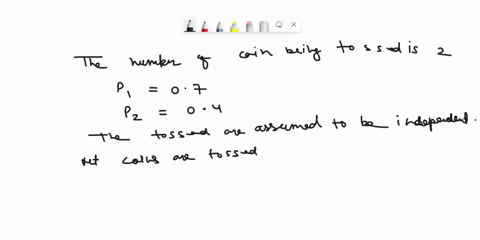 The number of coin being tossed is 2
P1 = 0.7
P2 = 0.4
The tossed are assumed to be independent.
let coins are tossed